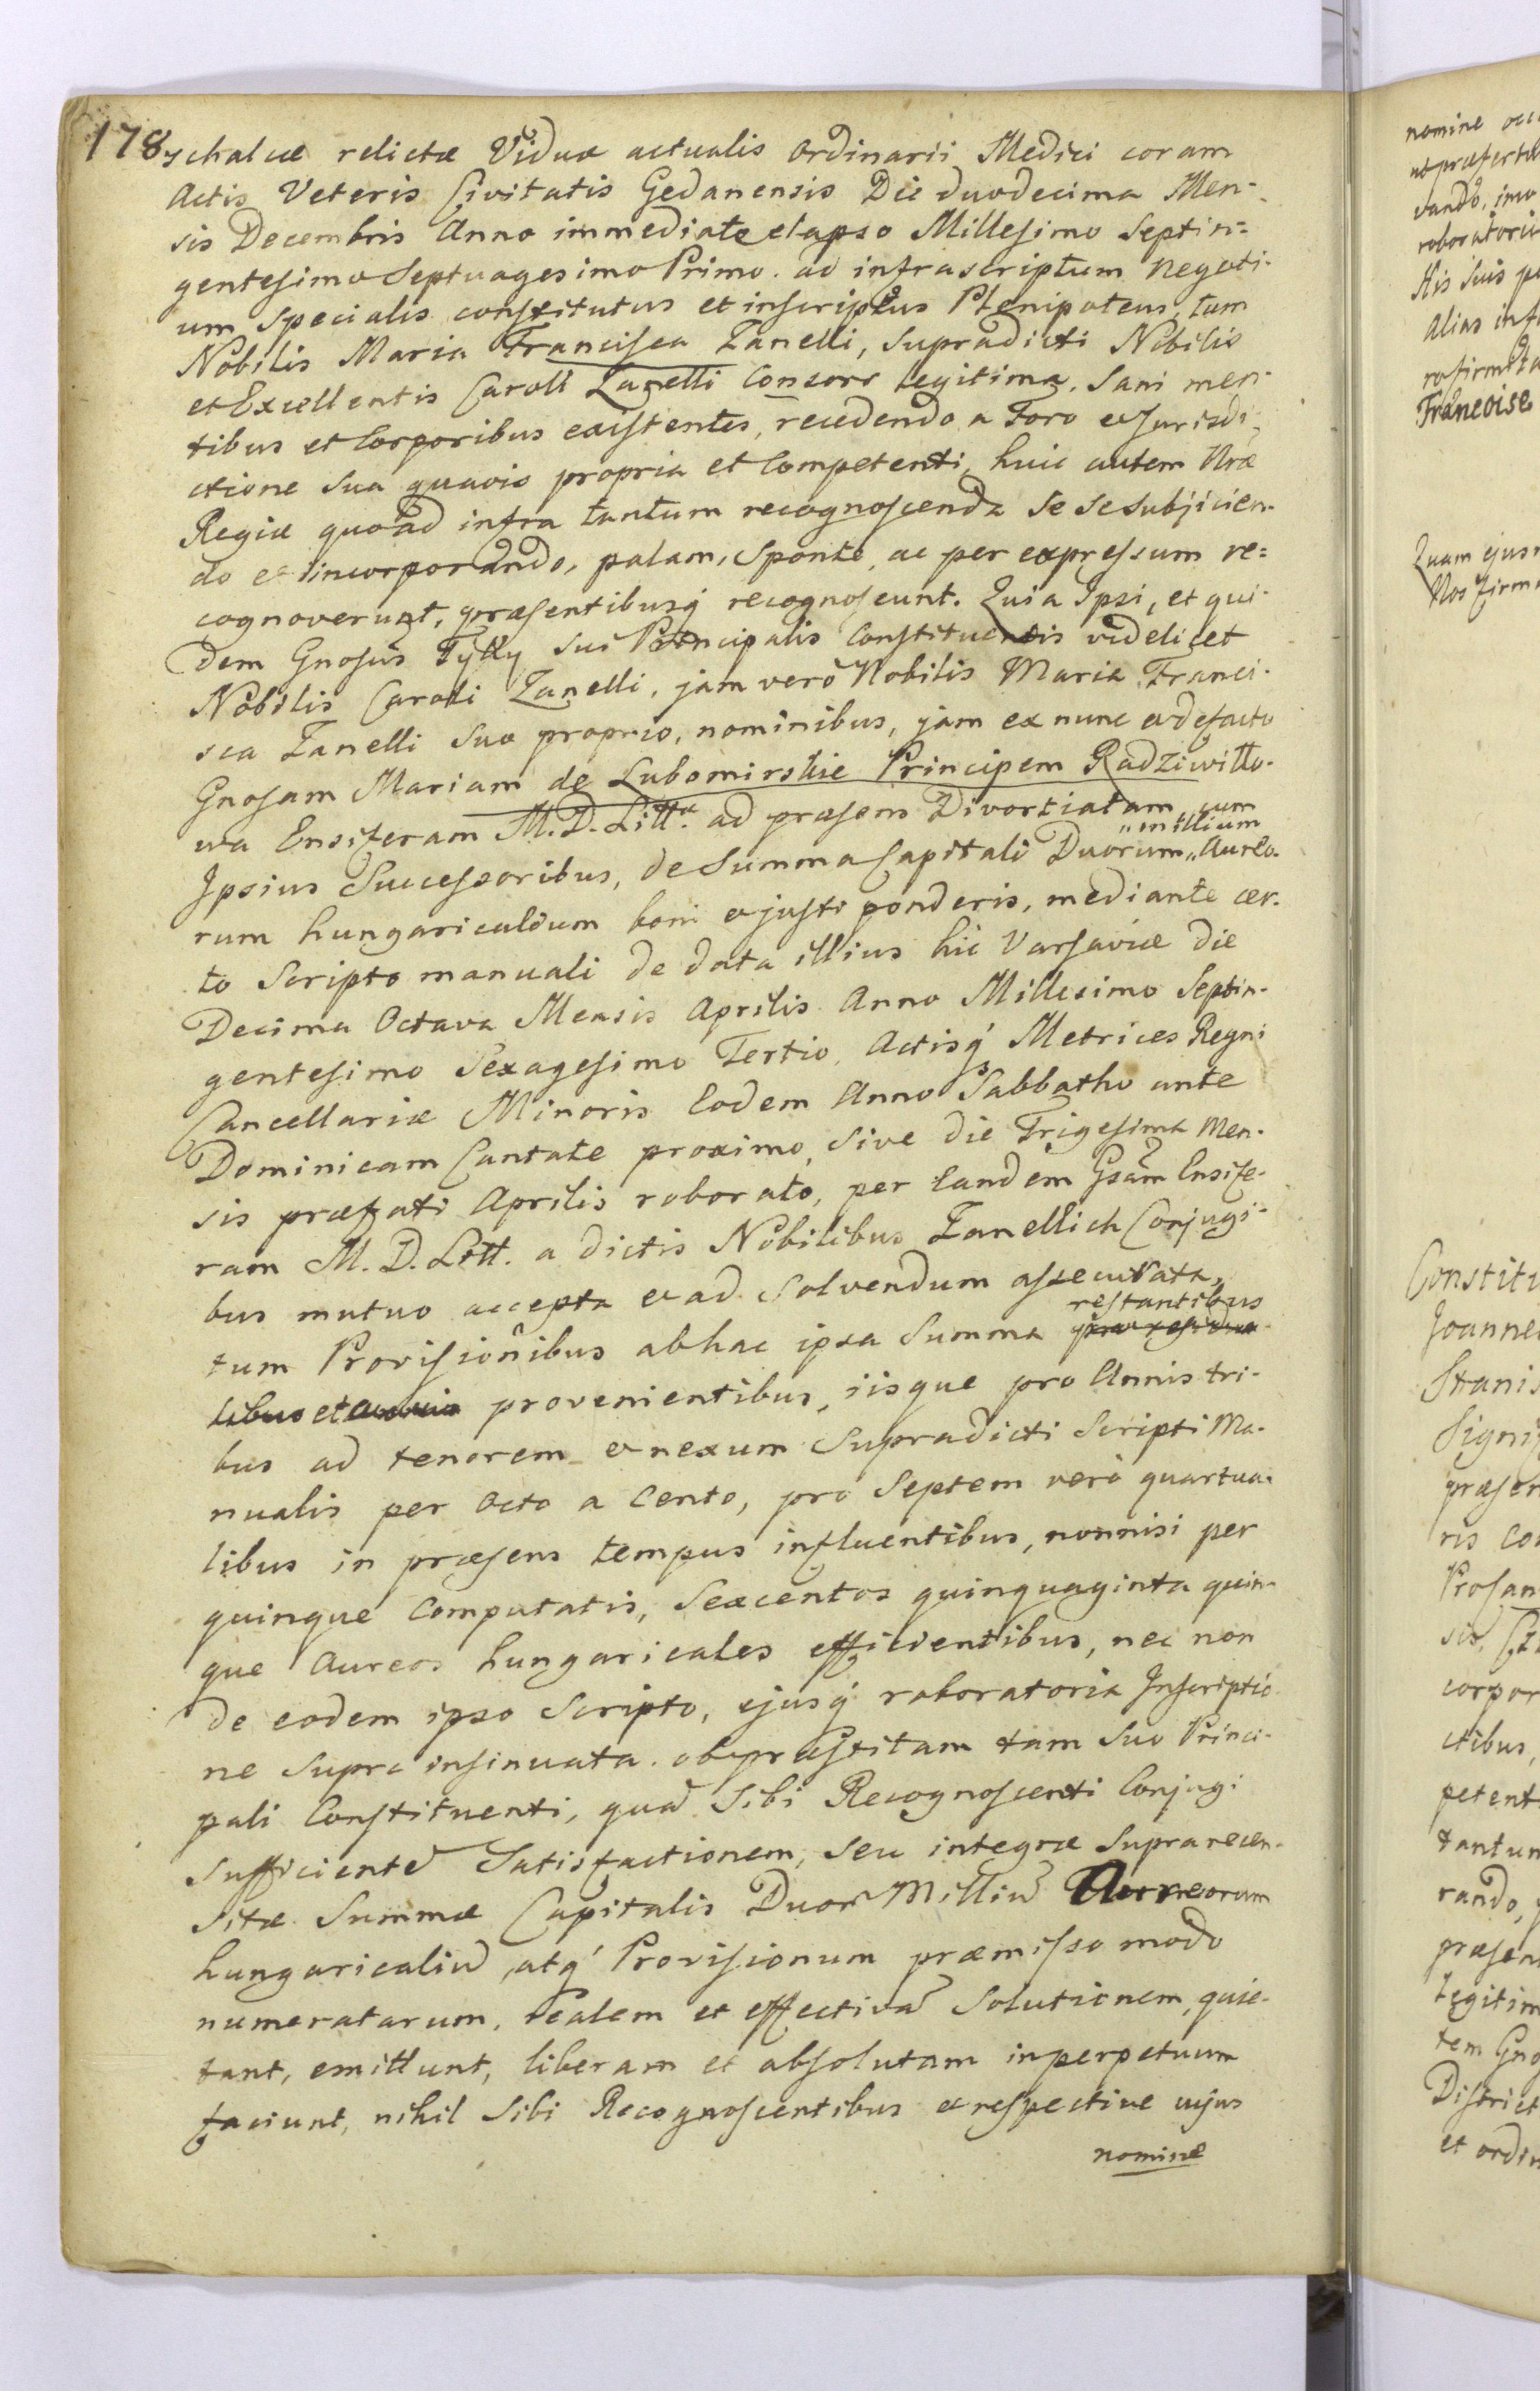 178
schalcæ relictæ Viduæ actualis Ordinarii Medici coram
Actis Veteris Civitatis Gedanensis Die duodecima Men-
sis Decembris Anno immediate elapso Millesimo Septin=
gentesimo Septuagesimo Primo. ad infrascriptum Negoti-
um Specialis constitutus et inscriptus Plenipotens, tum
Nobilis Maria Francisca Zanelli, Supradicti Nobilis
et Excellentis Caroli Zanelli Consors legitima. Sani men-
tibus et Corporibus existentes, recedendo a Foro et Jurisdi-
ctione Sua quavis propria et Competenti, huic autem Nræ
Regiæ quoad infra tantum recognoscenda Se Se Subjicien-
do et incorporando, palam, Sponte, ac per expressum re=
cognoverunt, præsentibusq́ recognoscunt. Quia Ipsi, et qui-
dem Gnosus Tylly Sui Principalis Constituentis videlicet
Nobilis Caroli Zanelli, jam verò Nobilis Maria Franci-
sca Zanelli Suo proprio, nominibus, jam ex nunc et de facto
Gnosam Mariam de Lubomirskie Principem Radziwiłło-
wa Ensiferam M. D. Litt. ad præsens Divortiatam, cum
Ipsius Successoribus, de Summa Capitali Duorum „millium„ Aureo-
rum hungaricalium boni et justi ponderis, mediante cer-
to Scripto manuali de data illius hic Varsaviæ die
Decima Octava Mensis Aprilis Anno Millesimo Septin-
gentesimo Sexagesimo Tertio, Actisq́ Metrices Regni
Cancellariæ Minoris Eodem Anno Sabbatho ante
Dominicam Cantate proximo, Sive die Trigesima Men-
sis præfati Aprilis roborato, per Eandem Gsam Ensife-
ram M. D. Litt. a dictis Nobilibus Zanellich Conjugi-
bus mutuo accepta et ad Solvendum assecurata,
tum Provisionibus ab hac ipsa Summa restantibus
libus et provenientibus, iisque pro Annis tri-
bus ad tenorem et nexum Supradicti Scripti Ma-
nualis per Octo a Cento, pro Septem verò quartua-
libus in præsens tempus influentibus, nonnisi per
quinque Computatis, Sexcentos quinquaginta quin-
que Aureos hungaricales efficientibus, nec non
de eodem ipso Scripto, ejusq́ roboratoria Inscriptio-
ne Supra insinuata. ob præstitam tam Suo Princi-
pali Constituenti, quā Sibi Recognoscenti Conjugi
Sufficientē Satisfactionem, Seu integræ Suprarecen-
sitæ Summæ Capitalis Duor Milliū Aureorum
hungaricaliū, atq́ Provisionum præmisso modo
numeratarum, realem et effectivā Solutionem, quie-
tant, emittunt, liberam et absolutam in perpetuum
faciunt, nihil Sibi Recognoscentibus et respective cujus
nomine